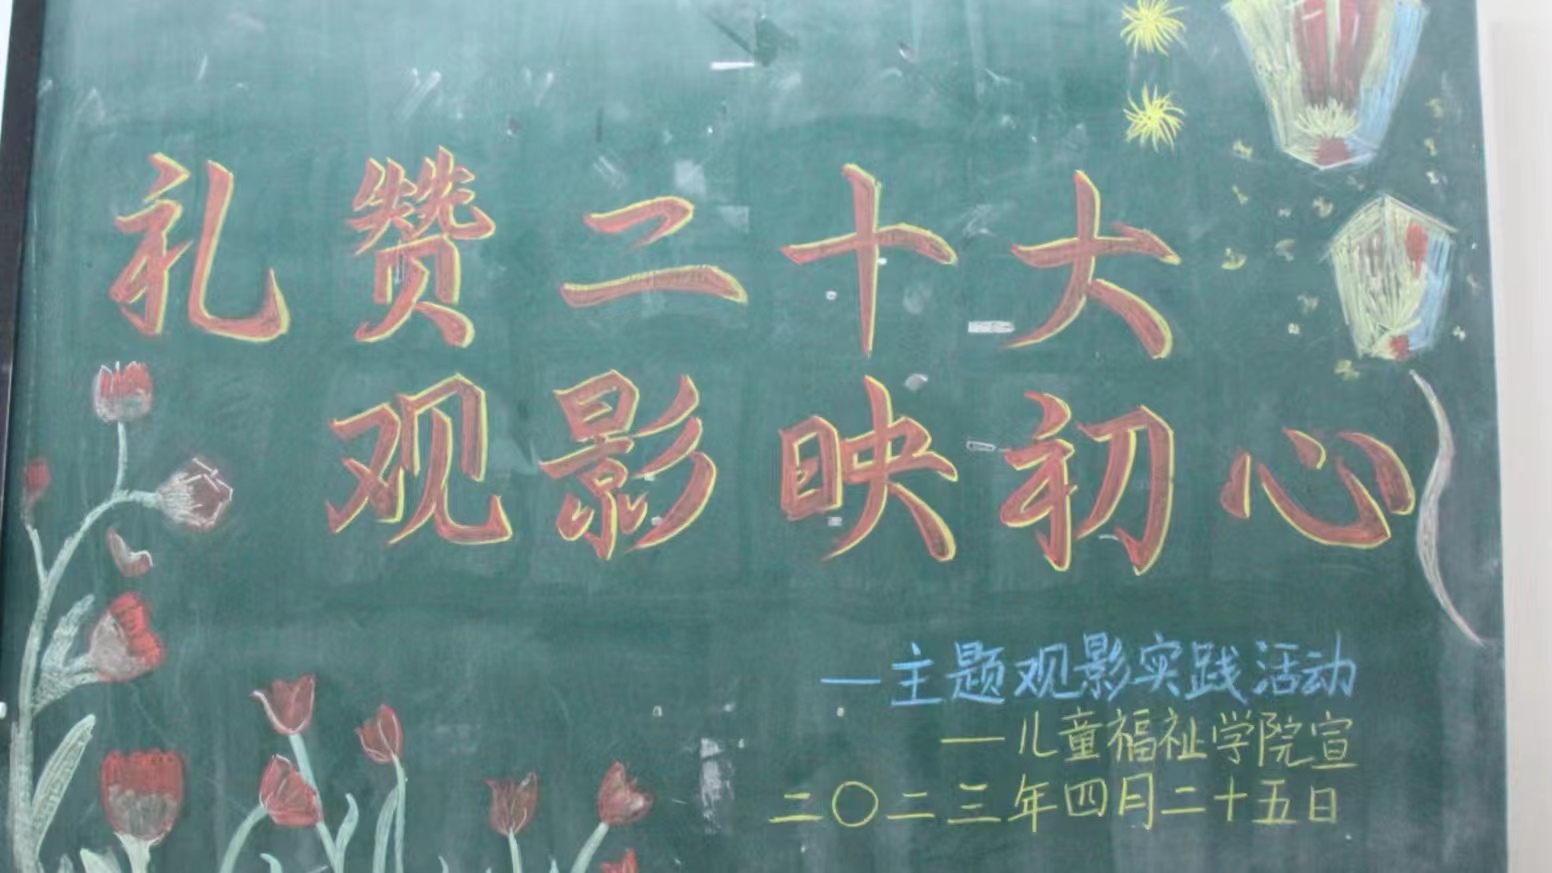 礼赞二十大
观影映初心
—主题观影实践活动
—儿童福祉学院宣
二〇二三年四月二十五日